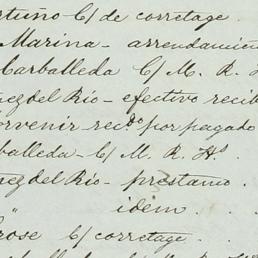 rtuño C/ de corretage.
Marina - arrendamien
Carballeda C/ M. R. H
nez del Rio - efectivo recib
orvenir recdo por pagado
rballeda - C/ M. R. Hs.
nez del Rio - prestamo. .
" idem . . .
rose C/ corretage. . .